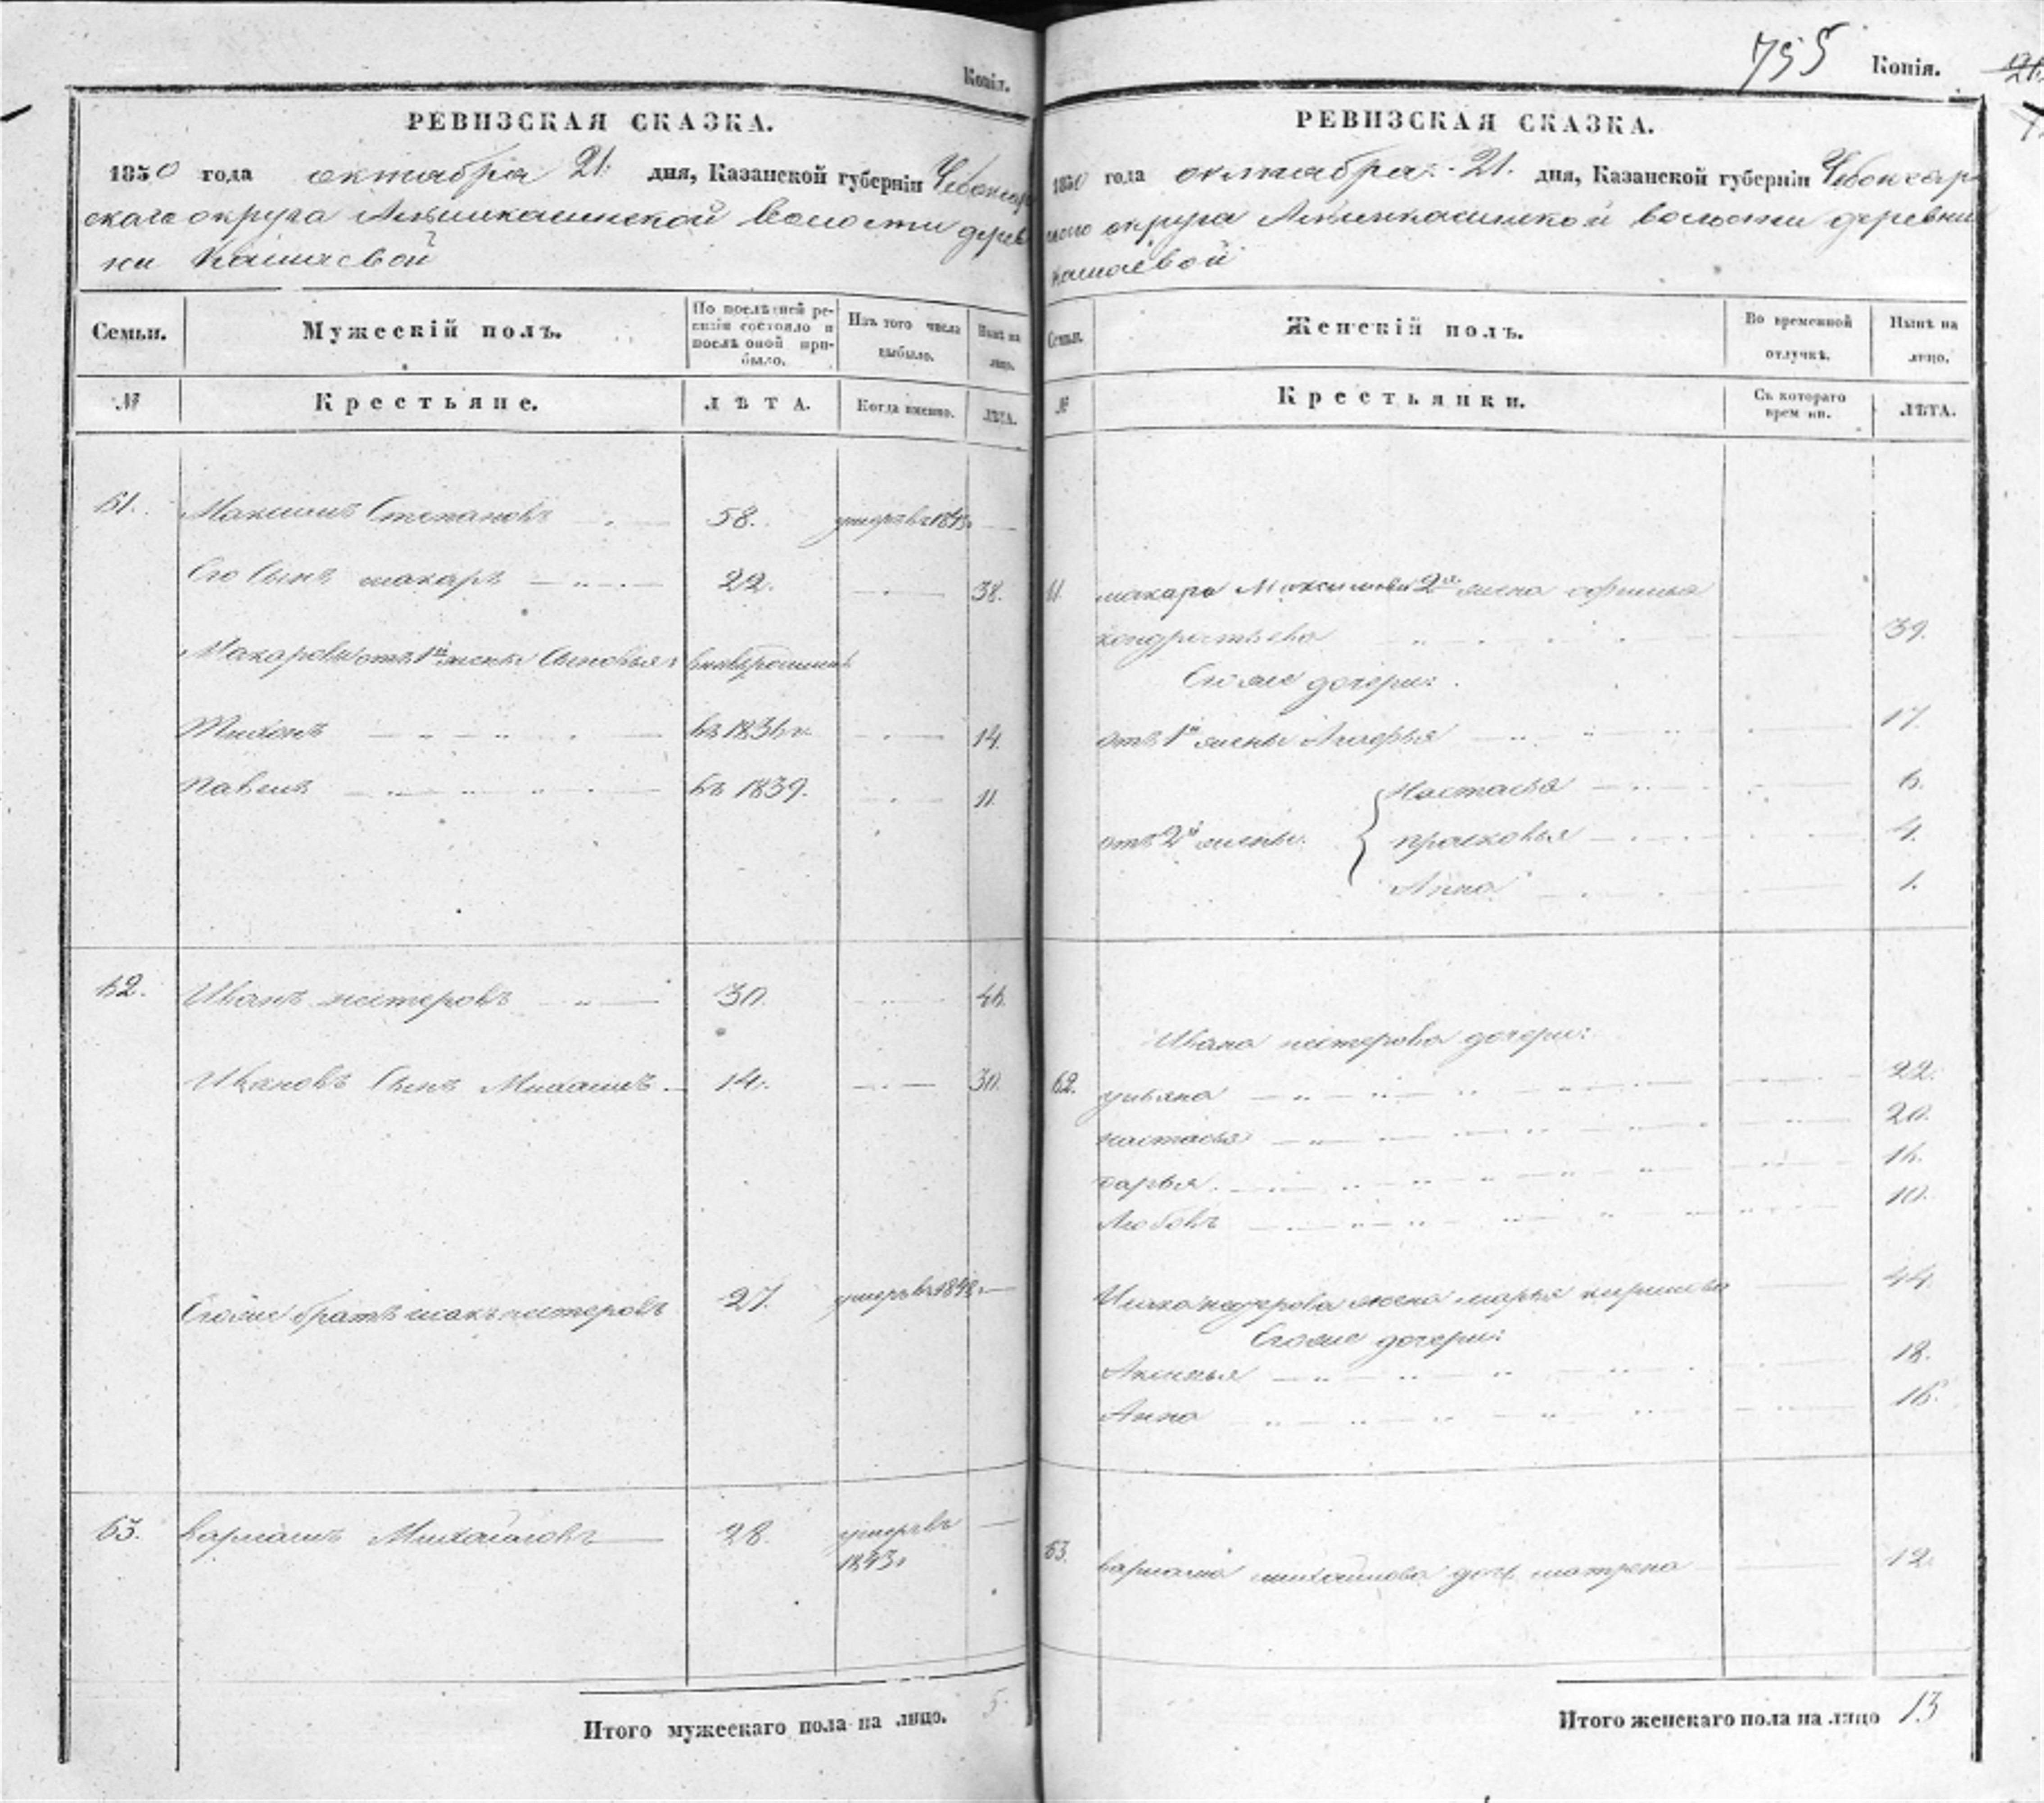 Копія.
РЕВИЗСКАЯ СКАЗКА.
1850 года октября 21. дня, Казанской губерніи Чебоксар
скаго округа волости дерев
ни Кашаевой
Семьи.
Мужескій полъ.
По послѣдней ре-
визіи состояло и
послѣ оной при-
было.
Изъ того числа
выбыло.
Нынѣ на
лицо.
№
Крестьяне.
ЛѢТА.
Когда именно.
ЛѢТА.
61. Максимъ Степановъ 58. умеръ въ 1843
Его Сынъ макаръ 22. 38.
Макаровы отъ 1й жены Сыновья:
Тихонъ въ 1836 г. 14.
Павелъ въ 1839. 11.
62. Иванъ нестеровъ 30. 46.
Ивановъ Сынъ 14. 30.
Его же братъ исакъ нестеровъ 27. умеръ въ 1848
63. Михайловъ 28. умеръ въ
1843
Итого мужескаго пола на лицо. 5.
755 Копія.
РЕВИЗСКАЯ СКАЗКА.
1850 года октября 21. дня, Казанской губерніи Чебоксар
скаго округа волости деревни
Кашаевой
Семьи.
Женскій полъ.
Во временной
отлучкѣ.
Нынѣ на
лицо.
№
Крестьянки.
Съ котораго
времени.
ЛѢТА.
61 макара Максимова 2я жена офимья
кондратьева 39.
Его же дочери:
отъ 1й жены 17.
Настасья 6.
отъ 2й жены: { прасковья 4.
Анна 1.
Ивана нестерова дочери:
62. ульяна 22.
настасья 20.
дарья 16.
Любовь 10.
Исака нестерова жена марья 44.
Его же дочери:
Аксинья 18.
Анна 16.
63. михайлова дочь матрена 12.
Итого женскаго пола на лицо 13